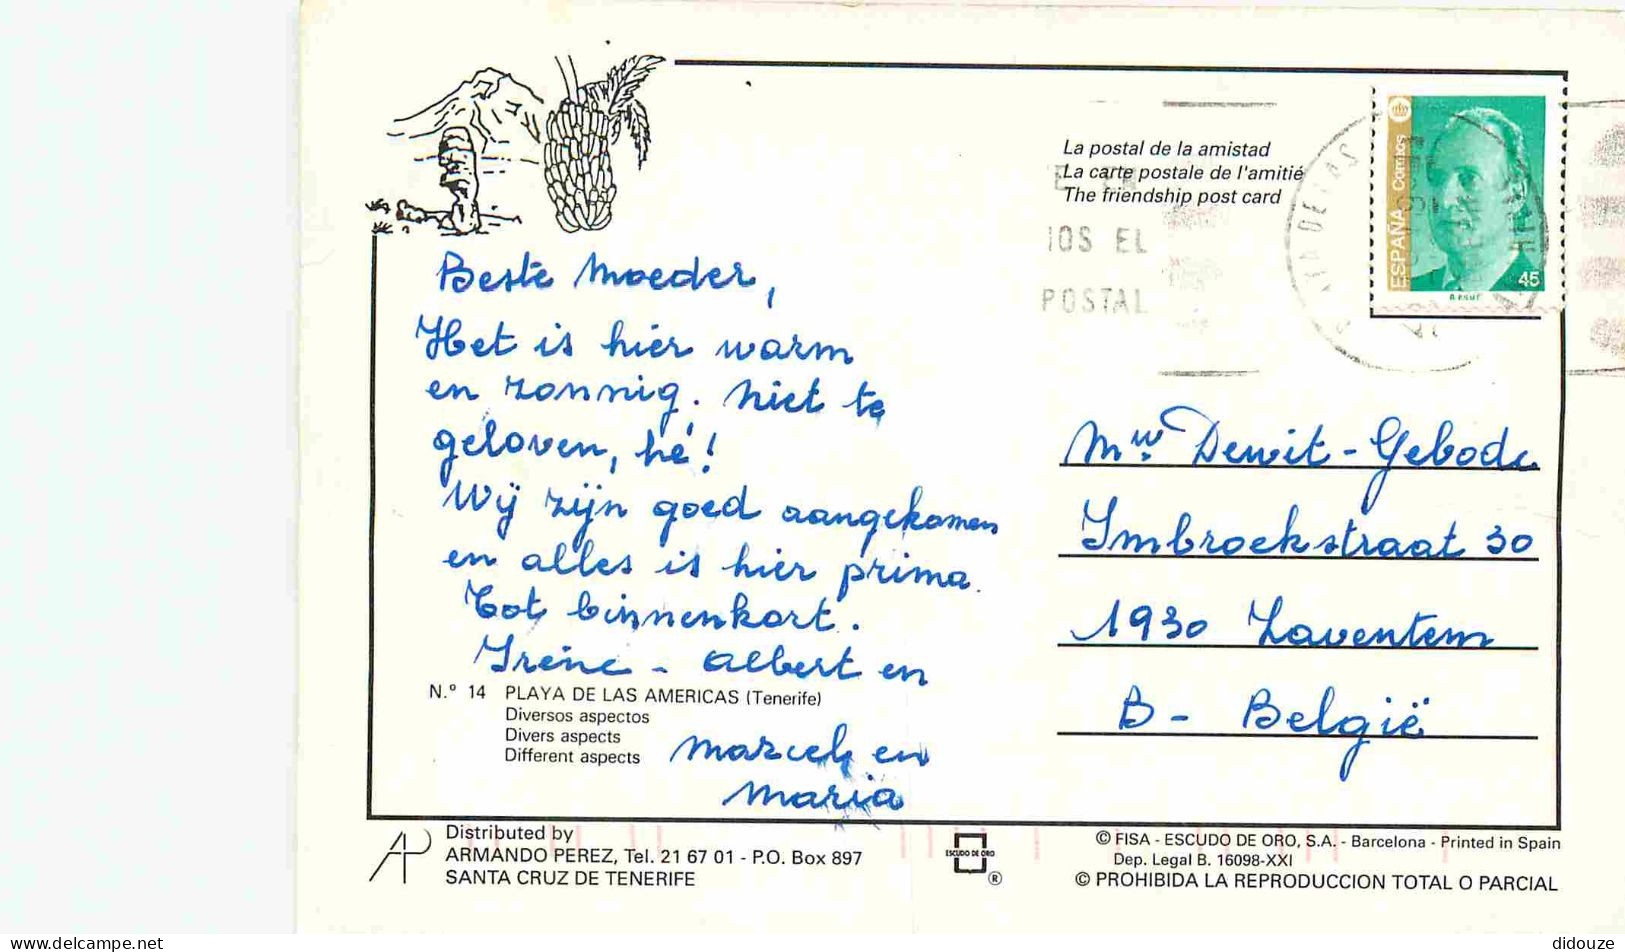 La postal de la amistad
La carte postale de l'amitié
The friendship post card
IOS EL
POSTAL
ESPAÑA Correos
45
Beste Moeder,
Het is hier warm
en zonnig. Niet te
geloven, hé!
Wij zijn goed aangekomen
en alles is hier prima.
Tot binnenkort.
Irène - Albert en
Marcel en
Maria
Mw. Dewit - Gebode
Imbroekstraat 30
1930 Zaventem
B - België
N.º 14 PLAYA DE LAS AMERICAS (Tenerife)
Diversos aspectos
Divers aspects
Different aspects
AP
Distributed by
ARMANDO PEREZ, Tel. 21 67 01 - P.O. Box 897
SANTA CRUZ DE TENERIFE
ESCUDO DE ORO
®
© FISA - ESCUDO DE ORO, S.A. - Barcelona - Printed in Spain
Dep. Legal B. 16098-XXI
© PROHIBIDA LA REPRODUCCION TOTAL O PARCIAL
https://www.delcampe.net
didouze